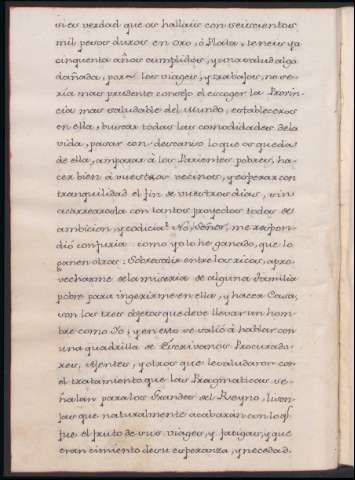 si es verdad que os hallais con seiscientos
mil pesos duros en oro, ó Plata, teneis ya
cinquenta años cumplidos, y una salud algo
dañada, por los viages, y trabajos, no se-
ria mas prudente consejo el escoger la Provin-
cia mas saludable del Mundo, estableceros
en ella, buscar todas las comodidades de la
vida, pasar con descanso lo que os queda
de ella, amparar à los Parientes pobres, ha-
cer bien à vuestros vecinos, y esperar con
tranquilidad el fin de vuestros dias, sin
acarrearosla con tantos proyectos todos de
ambicion, y codicia? No, Señor, me respon-
dió con furia: como yo lo he ganado, que lo
ganen otros: Sobresalir entre los ricos, apro-
vecharme de la miseria de alguna familia
pobre para ingerirme en ella, y hacer Casa,
son los tres objetos que deve llevar un hom-
bre como Yo; y en esto se salió à hablar con
una quadrilla de Escrivanos Procurado-
res, Agentes, y otros que le saludaron con
el tratamiento que las Pragmaticas se-
ñalan para los Grandes del Reyno, lison-
jas que naturalmente acabaràn con lo q.
fue el fruto de sus viages, y fatigas, y que
eran cimiento de su esperanza, y necedad.